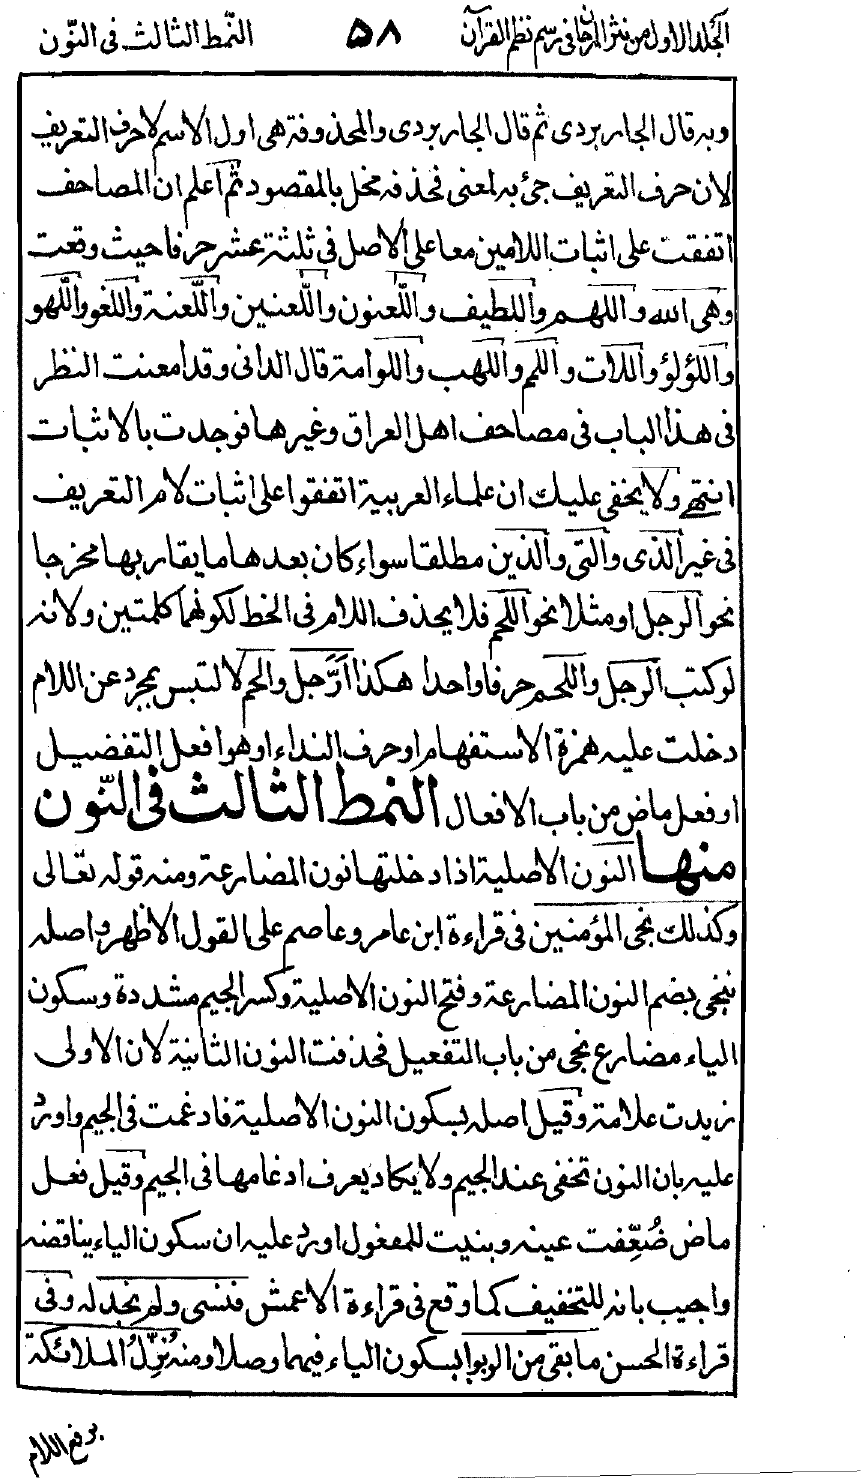 الجلد الاول من نثر المرجان فی رسم نظم القرآن ۵۸ النّمط الثالث فی النّون
وبه قال الجاربردی ثم قال الجاربردی والمحذوفة هی اول الاسم لاحرف التعریف
لان حرف التعریف جئ به لمعنی فحذفه مخل بالمقصود ثم اعلم ان المصاحف
اتفقت علی اثبات اللامین معا علی الاصل فی ثلثة عشر حرفا حیث وقعت
وهی الله واللهم واللطیف واللّعنون واللّعنین واللّعنة واللغو واللّهو
واللؤلؤ واللات واللمم واللهب واللوامة قال الدانی وقد امعنت النظر
فی هذا الباب فی مصاحف اهل العراق وغیرها فوجدت بالاثبات
انتهی ولا یخفی علیك ان علماء العربیة اتفقوا علی اثبات لام التعریف
فی غیر الذی والتی والذین مطلقا سواء کان بعدها ما یقاربها مخرجا
نحو الرجل او مثلا نحو اللحم فلا یحذف اللام فی الخط لکونهما کلمتین ولانه
لو کتب الرجل واللحم حرفا واحدا هکذا ارَّجل والحم لالتبس بمجرد عن اللام
دخلت علیه همزة الاستفهام او حرف النداء او هو افعل التفضیل
او فعل ماض من باب الافعال النمط الثالث فی النّون
منها النون الاصلیة اذا دخلتها نون المضارعة ومنه قوله تعالی
وکذلك نجی المؤمنین فی قراءة ابن عامر وعاصم علی القول الاظهر واصله
ننجی بضم النون المضارعة وفتح النون الاصلیة وکسر الجیم مشددة وسکون
الیاء مضارع نجی من باب التفعیل فحذفت النون الثانیة لان الاولی
زیدت علامة وقیل اصله بسکون النون الاصلیة فادغمت فی الجیم واورد
علیه بان النون تخفی عند الجیم ولا یکاد یعرف ادغامها فی الجیم وقیل فعل
ماض ضُعِّفت عینه وبنیت للمفعول اورد علیه ان سکون الیاء یناقضه
واجیب بانه للتخفیف کما وقع فی قراءة الاعمش فنسی ولم نجد له وفی
قراءة الحسن ما بقی من الربوا بسکون الیاء فیهما وصلا ومنه نُزِّلُ الملائکة
برفع اللام